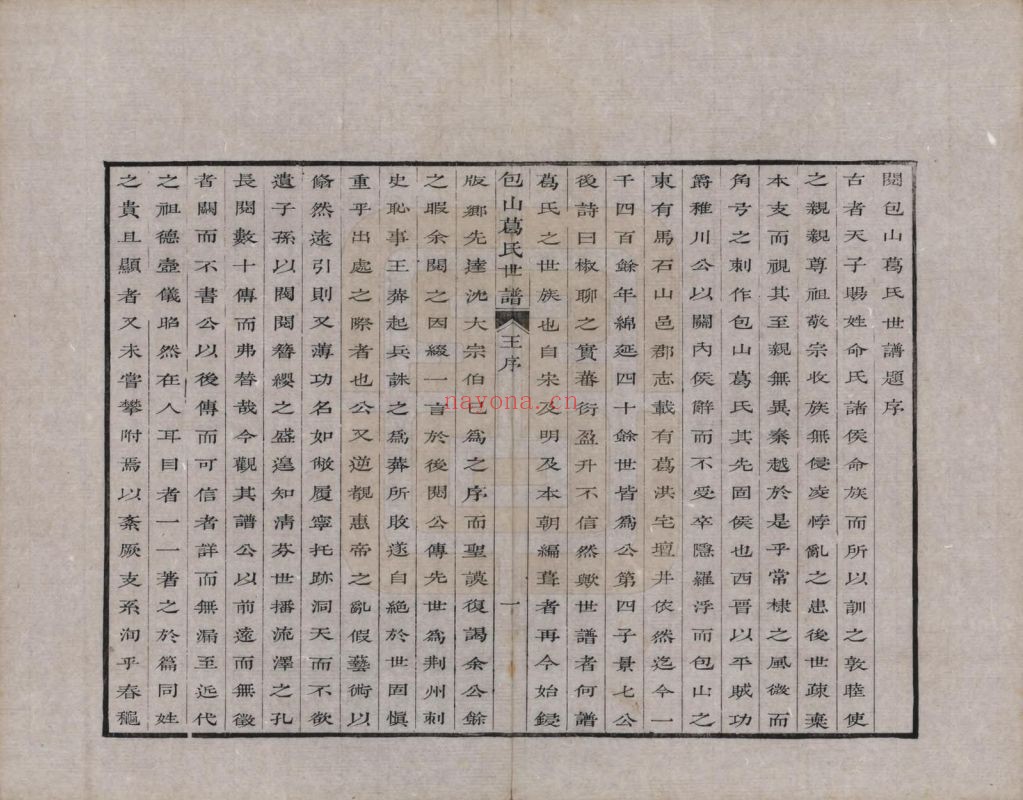 閱包山葛氏世譜題序
古者天子賜姓命氏諸侯命族而所以訓之敦睦使
之親親尊祖敬宗收族無侵凌悖亂之患後世疎棄
本支而視其至親無異秦越於是乎常棣之風微而
角弓之刺作包山葛氏其先固侯也西晋以平賊功
爵稚川公以關內侯辭而不受卒隱羅浮而包山之
東有馬石山邑郡志載有葛洪宅壇井依然迄今一
千四百餘年綿延四十餘世皆爲公第四子景七公
後詩曰椒聊之實蕃衍盈升不信然歟世譜者何譜
葛氏之世族也自宋及明及本朝編葺者再今始鋟
包山葛氏世譜 王序 一
版鄉先達沈大宗伯已爲之序而聖謨復謁余公餘
之暇余閱之因綴一言於後閱公傳先世爲荆州刺
史恥事王莽起兵誅之爲莽所敗遂自絕於世固愼
重乎出處之際者也公又逆覩惠帝之亂假藝術以
翛然遠引則又薄功名如敝履寧托跡洞天而不欲
遺子孫以閥閱簪纓之盛遑知清芬世播流澤之孔
長閱數十傳而弗替哉今觀其譜公以前遠而無徵
者闕而不書公以後傳而可信者詳而無漏至近代
之祖德壼儀昭然在人耳目者一一著之於篇同姓
之貴且顯者又未嘗攀附焉以紊厥支系洵乎春龝
nayona.cn